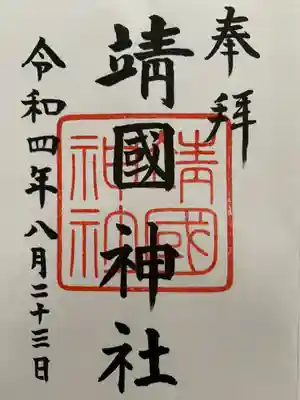 奉拝
靖國神社
靖國
神社
令和四年八月二十三日